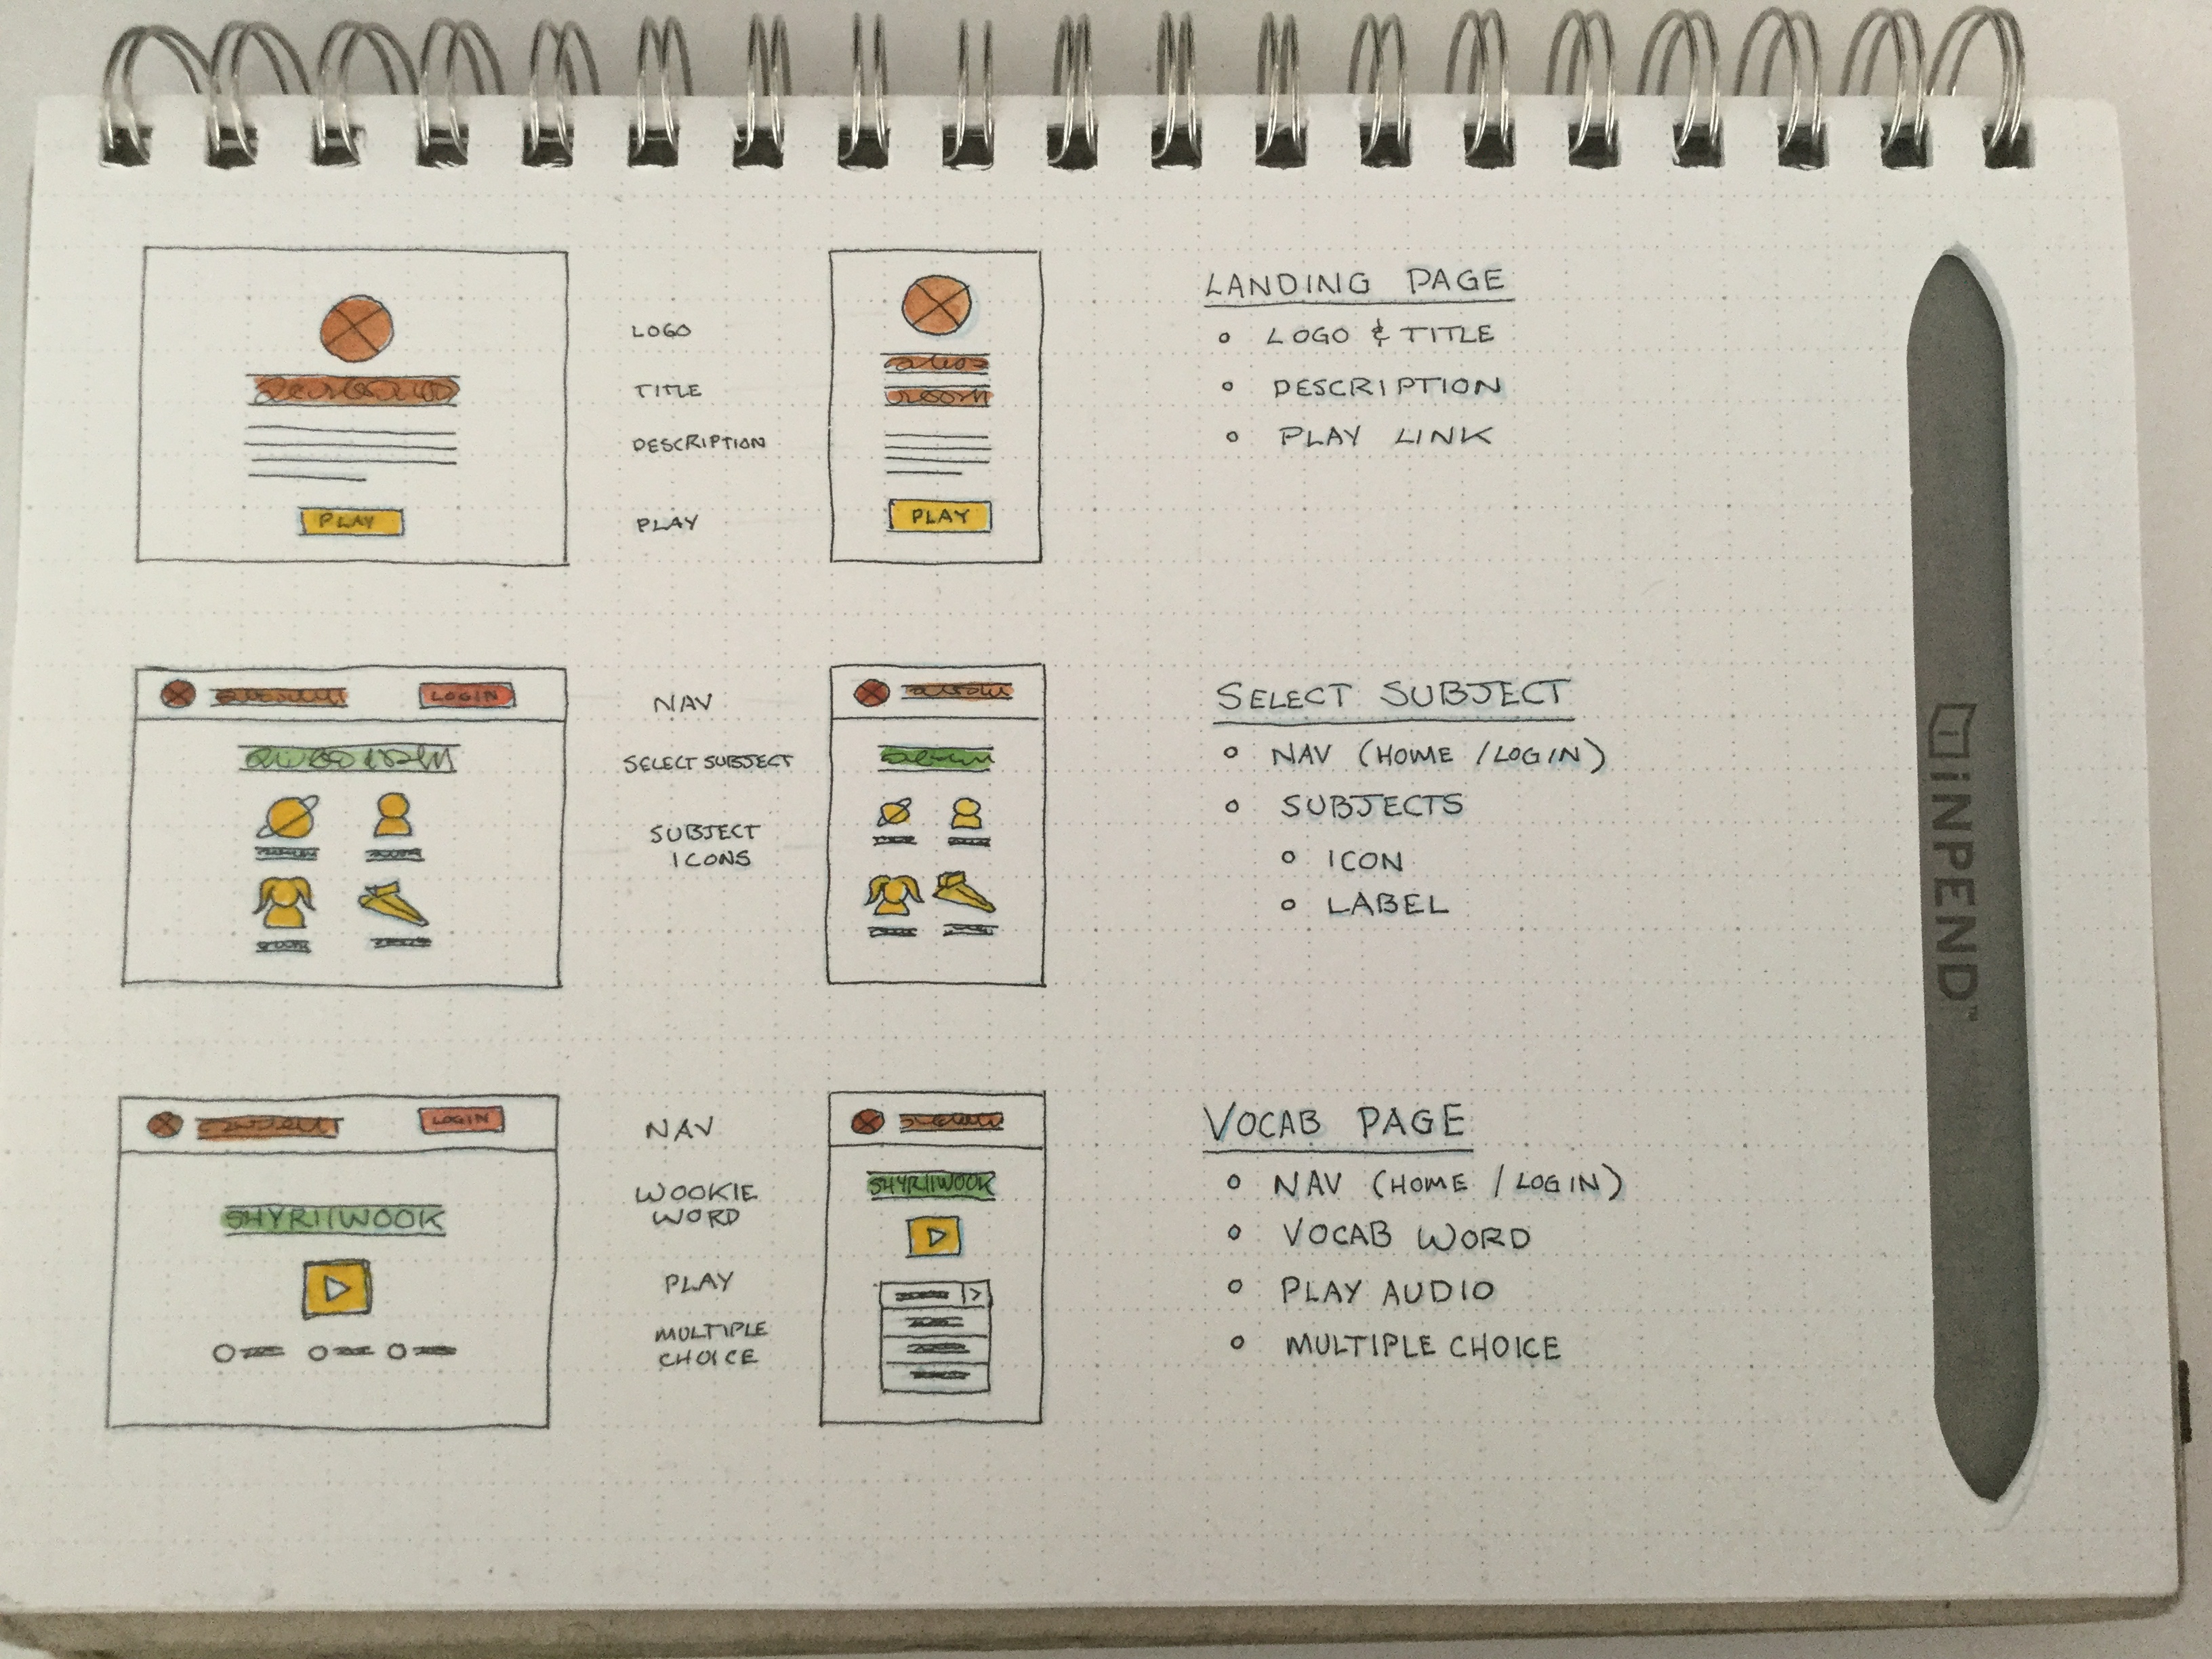 PLAY
LOGO
TITLE
DESCRIPTION
PLAY
PLAY
LANDING PAGE
LOGO & TITLE
DESCRIPTION
PLAY LINK
LOGIN
NAV
SELECT SUBJECT
SUBJECT
ICONS
SELECT SUBJECT
NAV (HOME / LOGIN)
SUBJECTS
ICON
LABEL
LOGIN
SHYRIIWOOK
NAV
WOOKIE
WORD
PLAY
MULTIPLE
CHOICE
SHYRIIWOOK
VOCAB PAGE
NAV (HOME / LOGIN)
VOCAB WORD
PLAY AUDIO
MULTIPLE CHOICE
INPEND™